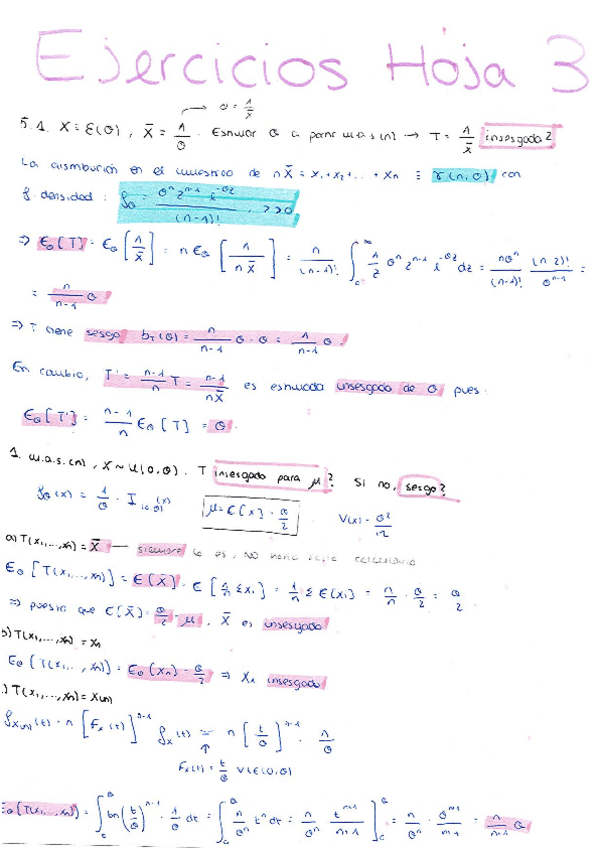 Ejercicios Hoja 3
θ = 1/x̄
5.1. X ≡ ε(θ), X̄ = 1/θ. Estimar θ a partir m.a.s.(n) → T = 1/x̄ insesgado?
La distribución en el muestreo de nX̄ = x₁+x₂+...+xₙ ≡ γ(n,θ) con
f. densidad: f_θ = θⁿ z^(n-1) e^(-θz) / (n-1)! , z>0
⇒ E_θ[T] = E_θ[1/x̄] = n E_θ[1/(nx̄)] = n/(n-1)! ∫₀^∞ 1/z θⁿ z^(n-1) e^(-θz) dz = nθⁿ/(n-1)! (n-2)!/θ^(n-1) =
= n/(n-1) θ
⇒ T tiene sesgo b_T(θ) = n/(n-1) θ - θ = 1/(n-1) θ.
En cambio, T' = (n-1)/n T = (n-1)/(nX̄) es insesgado de θ pues
E_θ[T'] = (n-1)/n E_θ[T] = θ.
1. m.a.s.(n), X∼U(0,θ). T insesgado para μ? Si no, sesgo?
f_θ(x) = 1/θ · I_(0,θ)(x) μ = E[x] = θ/2 V(x) = θ²/12
a) T(x₁,...,xₙ) = X̄ — siempre lo es, NO haría falta calcularlo
E_θ[T(x₁,...,xₙ)] = E(X̄) = E[1/n Σxᵢ] = 1/n Σ E(xᵢ) = n/n · θ/2 = θ/2
⇒ puesto que E[X̄] = θ/2 = μ, X̄ es insesgado
b) T(x₁,...,xₙ) = xₙ
E_θ[T(x₁,...,xₙ)] = E_θ(xₙ) = θ/2 ⇒ xₙ insesgado
c) T(x₁,...,xₙ) = x₍ₙ₎
f_x₍ₙ₎(t) = n[F_x(t)]^(n-1) f_x(t) = n[t/θ]^(n-1) · 1/θ
↑
F_x(t) = t/θ ∀t∈(0,θ)
E_θ[T(x₁,...,xₙ)] = ∫₀^θ tn(t/θ)^(n-1) · 1/θ dt = ∫₀^θ n/θⁿ tⁿ dt = n/θⁿ t^(n+1)/(n+1)]₀^θ = n/θⁿ · θ^(n+1)/(n+1) = n/(n+1) θ